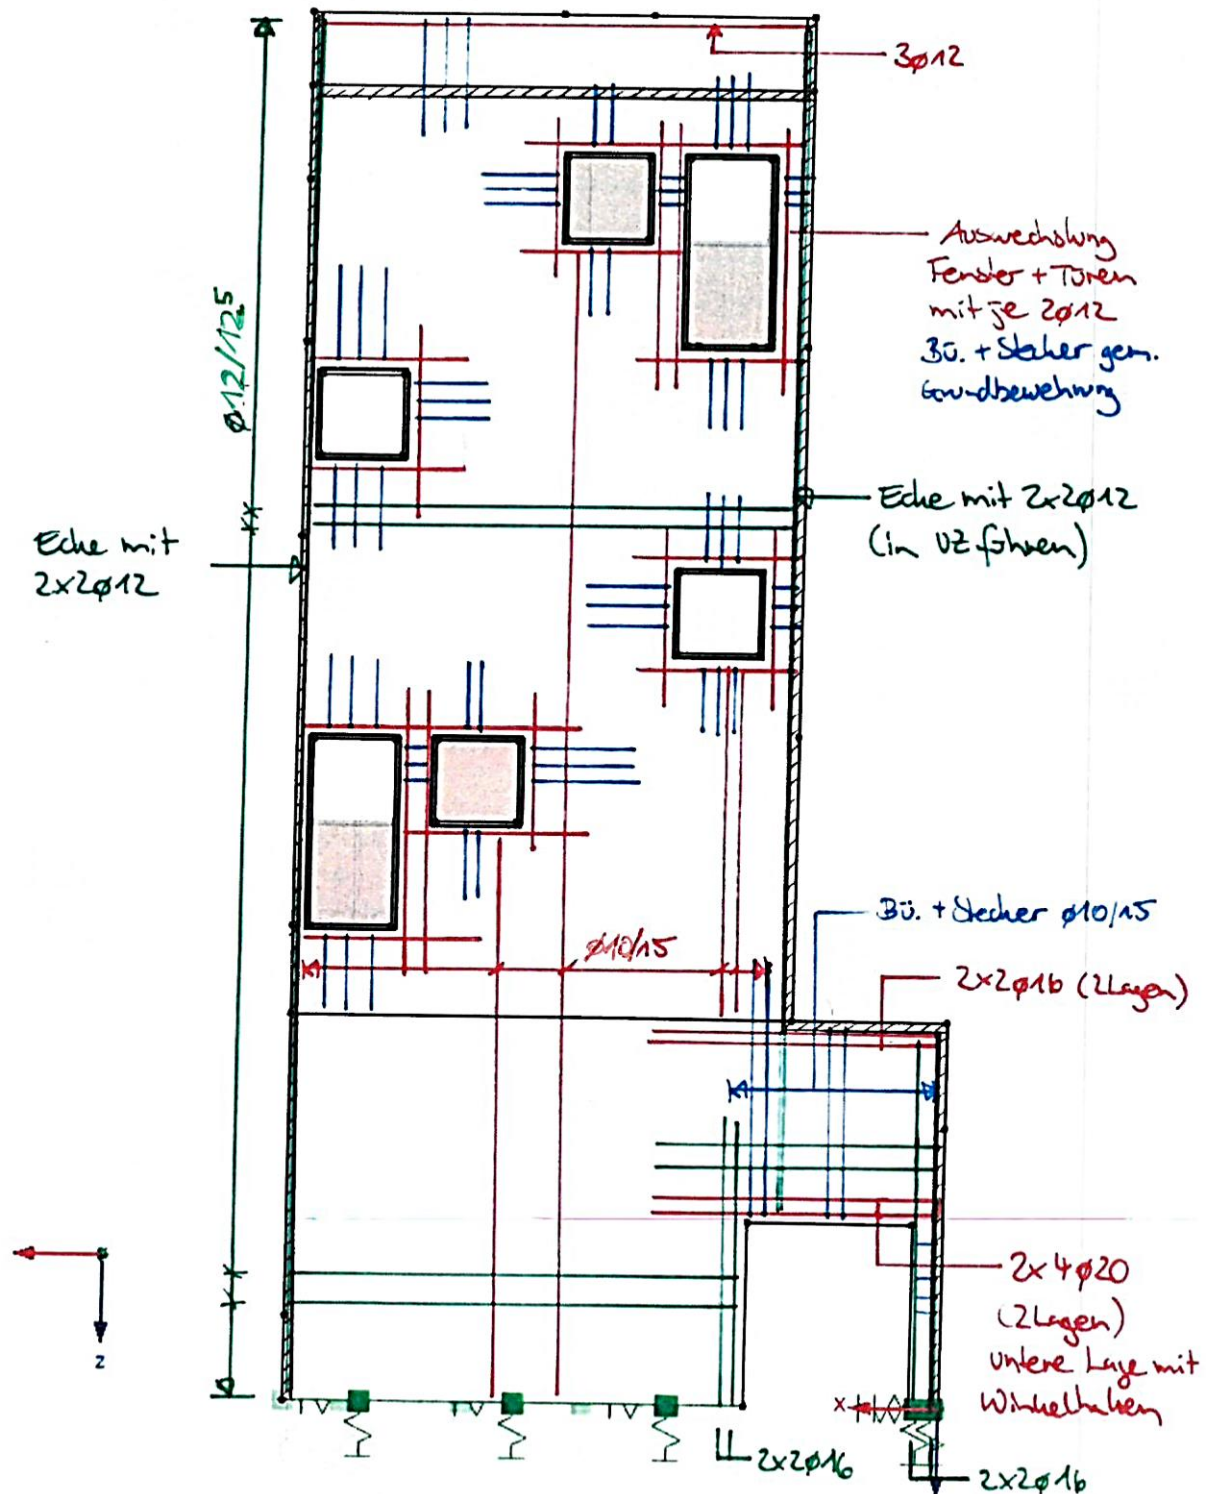 3ø12
Auswechslung
Fenster + Türen
mit je 2ø12
Bü. + Stecker gem.
Grundbewehrung
ø12/12⁵
Ecke mit
2x2ø12
Ecke mit 2x2ø12
(in UZ führen)
Bü. + Stecker ø10/15
ø10/15
2x2ø16 (2Lagen)
2x4ø20
(2Lagen)
untere Lage mit
Winkelhaken
z
x
2x2ø16
2x2ø16